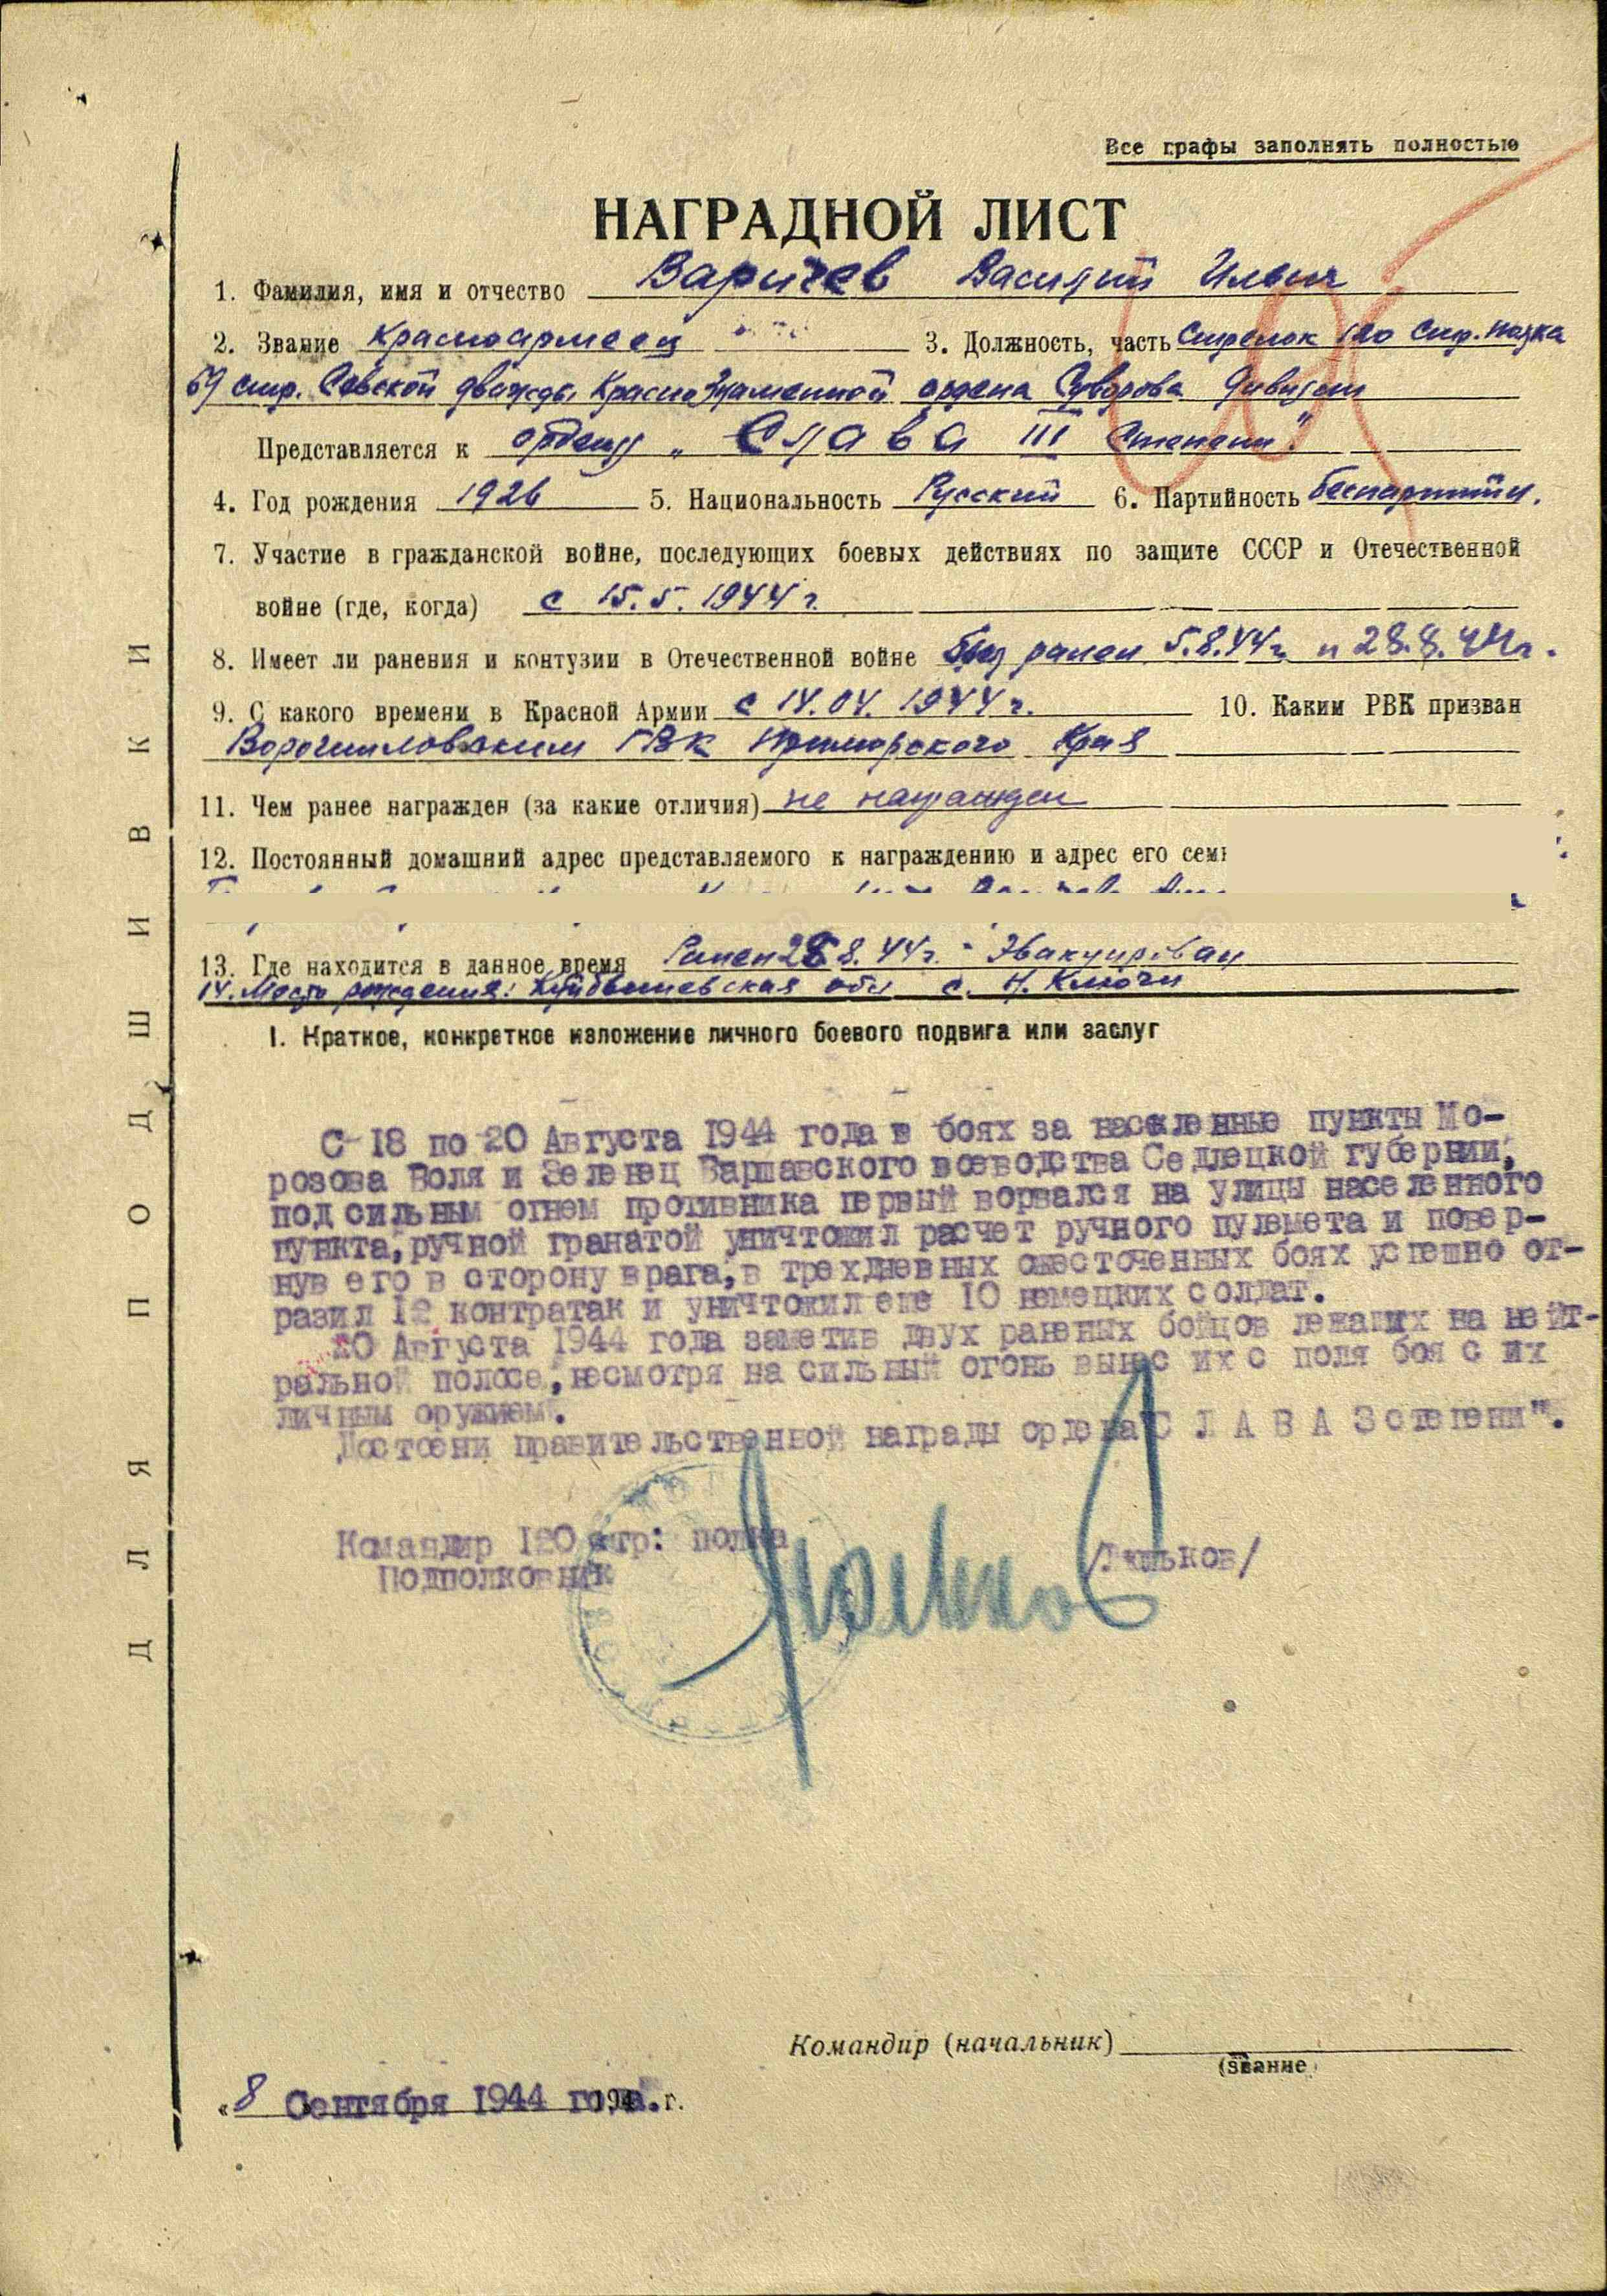 Все графы заполнять полностью
НАГРАДНОЙ ЛИСТ
1. Фамилия, имя и отчество Варичев Василий Ильич
2. Звание Красноармеец 3. Должность, часть Стрелок 120 стр. полка
69 стр. Севской дважды Краснознаменной ордена Суворова дивизии
Представляется к ордену „Слава III степени".
4. Год рождения 1926 5. Национальность Русский 6. Партийность беспартийн.
7. Участие в гражданской войне, последующих боевых действиях по защите СССР и Отечественной
войне (где, когда) с 15.5.1944 г.
8. Имеет ли ранения и контузии в Отечественной войне был ранен 5.8.44 г. и 28.8.44 г.
9. С какого времени в Красной Армии с 14.04.1944 г. 10. Каким РВК призван
Ворошиловским ГВК Приморского Края
11. Чем ранее награжден (за какие отличия) не награжден
12. Постоянный домашний адрес представляемого к награждению и адрес его
13. Где находится в данное время Ранен 28.8.44 г. - Эвакуирован
14. Место рождения: Куйбышевская обл с. Н. Ключи
I. Краткое, конкретное изложение личного боевого подвига или заслуг
С 18 по 20 Августа 1944 года в боях за населенные пункты Мо-
розова Воля и Зеленец Варшавского воеводства Седлецкой губернии,
под сильным огнем противника первый ворвался на улицы населенного
пункта, ручной гранатой уничтожил расчет ручного пулемета и повер-
нув его в сторону врага, в трехдневных ожесточенных боях успешно от-
разил 12 контратак и уничтожил еще 10 немецких солдат.
20 Августа 1944 года заметив двух раненых бойцов лежащих на нейт-
ральной полосе, несмотря на сильный огонь вынес их с поля боя с их
личным оружием.
Достоен правительственной награды ордена "С Л А В А 3 степени".
Командир 120 стр: полка
Подполковник /Люльков/
Командир (начальник)
(звание)
«8 Сентября 1944 года. г.
ДЛЯ ПОДШИВКИ